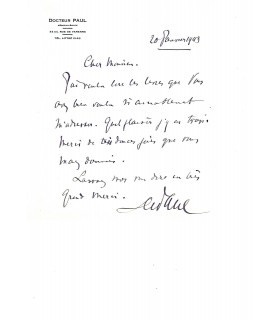 DOCTEUR PAUL
20 Janvier 1943
Cher Monsieur.
J'ai voulu lire les livres que vous
avez bien voulu si aimablement
m'adresser. Quel plaisir j'y ai trouvé
Merci de ces douces joies que vous
m'avez données.
Laissez moi vous dire un très
Grand merci.